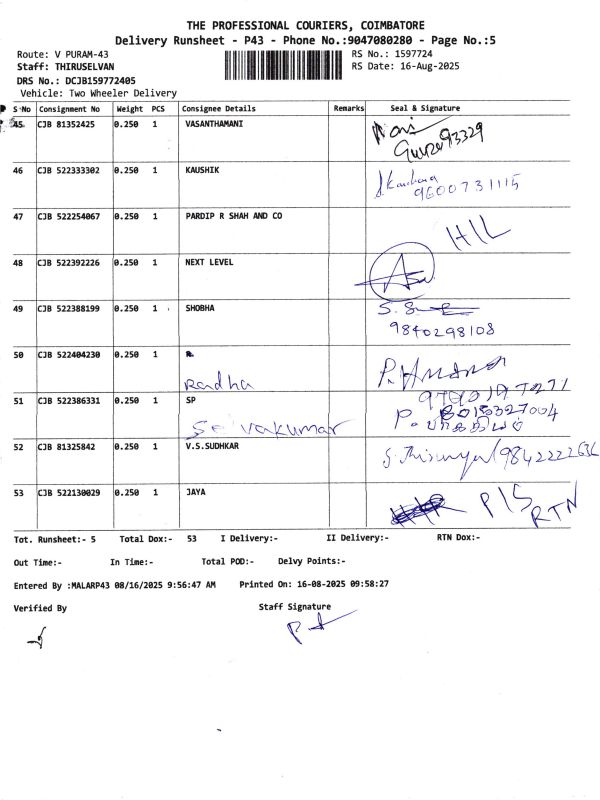 THE PROFESSIONAL COURIERS, COIMBATORE
Delivery Runsheet - P43 - Phone No.:9047080280 - Page No.:5
Route: V PURAM-43
RS No.: 1597724
Staff: THIRUSELVAN
RS Date: 16-Aug-2025
DRS No.: DCJB159772405
Vehicle: Two Wheeler Delivery
S No Consignment No Weight PCS Consignee Details Remarks Seal & Signature
45 CJB 81352425 0.250 1 VASANTHAMANI
46 CJB 522333302 0.250 1 KAUSHIK
9600731115
47 CJB 522254067 0.250 1 PARDIP R SHAH AND CO
HIL
48 CJB 522392226 0.250 1 NEXT LEVEL
49 CJB 522388199 0.250 1 SHOBHA
9840298108
50 CJB 522404230 0.250 1 R
Radha
51 CJB 522386331 0.250 1 SP
Selvakumar
52 CJB 81325842 0.250 1 V.S.SUDHKAR
53 CJB 522130029 0.250 1 JAYA
P/S
RTN
Tot. Runsheet:- 5 Total Dox:- 53 I Delivery:- II Delivery:- RTN Dox:-
Out Time:- In Time:- Total POD:- Delvy Points:-
Entered By :MALARP43 08/16/2025 9:56:47 AM Printed On: 16-08-2025 09:58:27
Verified By Staff Signature